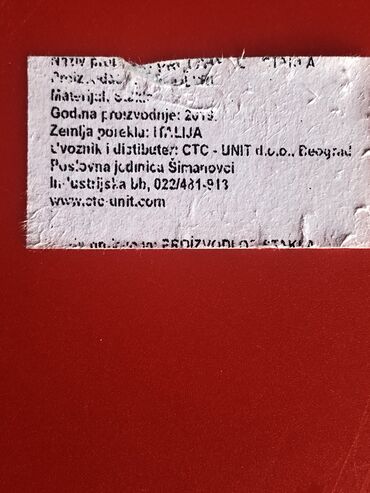 Naziv proizvoda: STAKLA
Proizvođač:
Materijal: Staklo
Godina proizvodnje: 2019.
Zemlja porekla: ITALIJA
Uvoznik i distributer: CTC - UNIT d.o.o., Beograd
Poslovna jedinica Šimanovci
Industrijska bb, 022/481-913
www.ctc-unit.com
PROIZVOD OD STAKLA